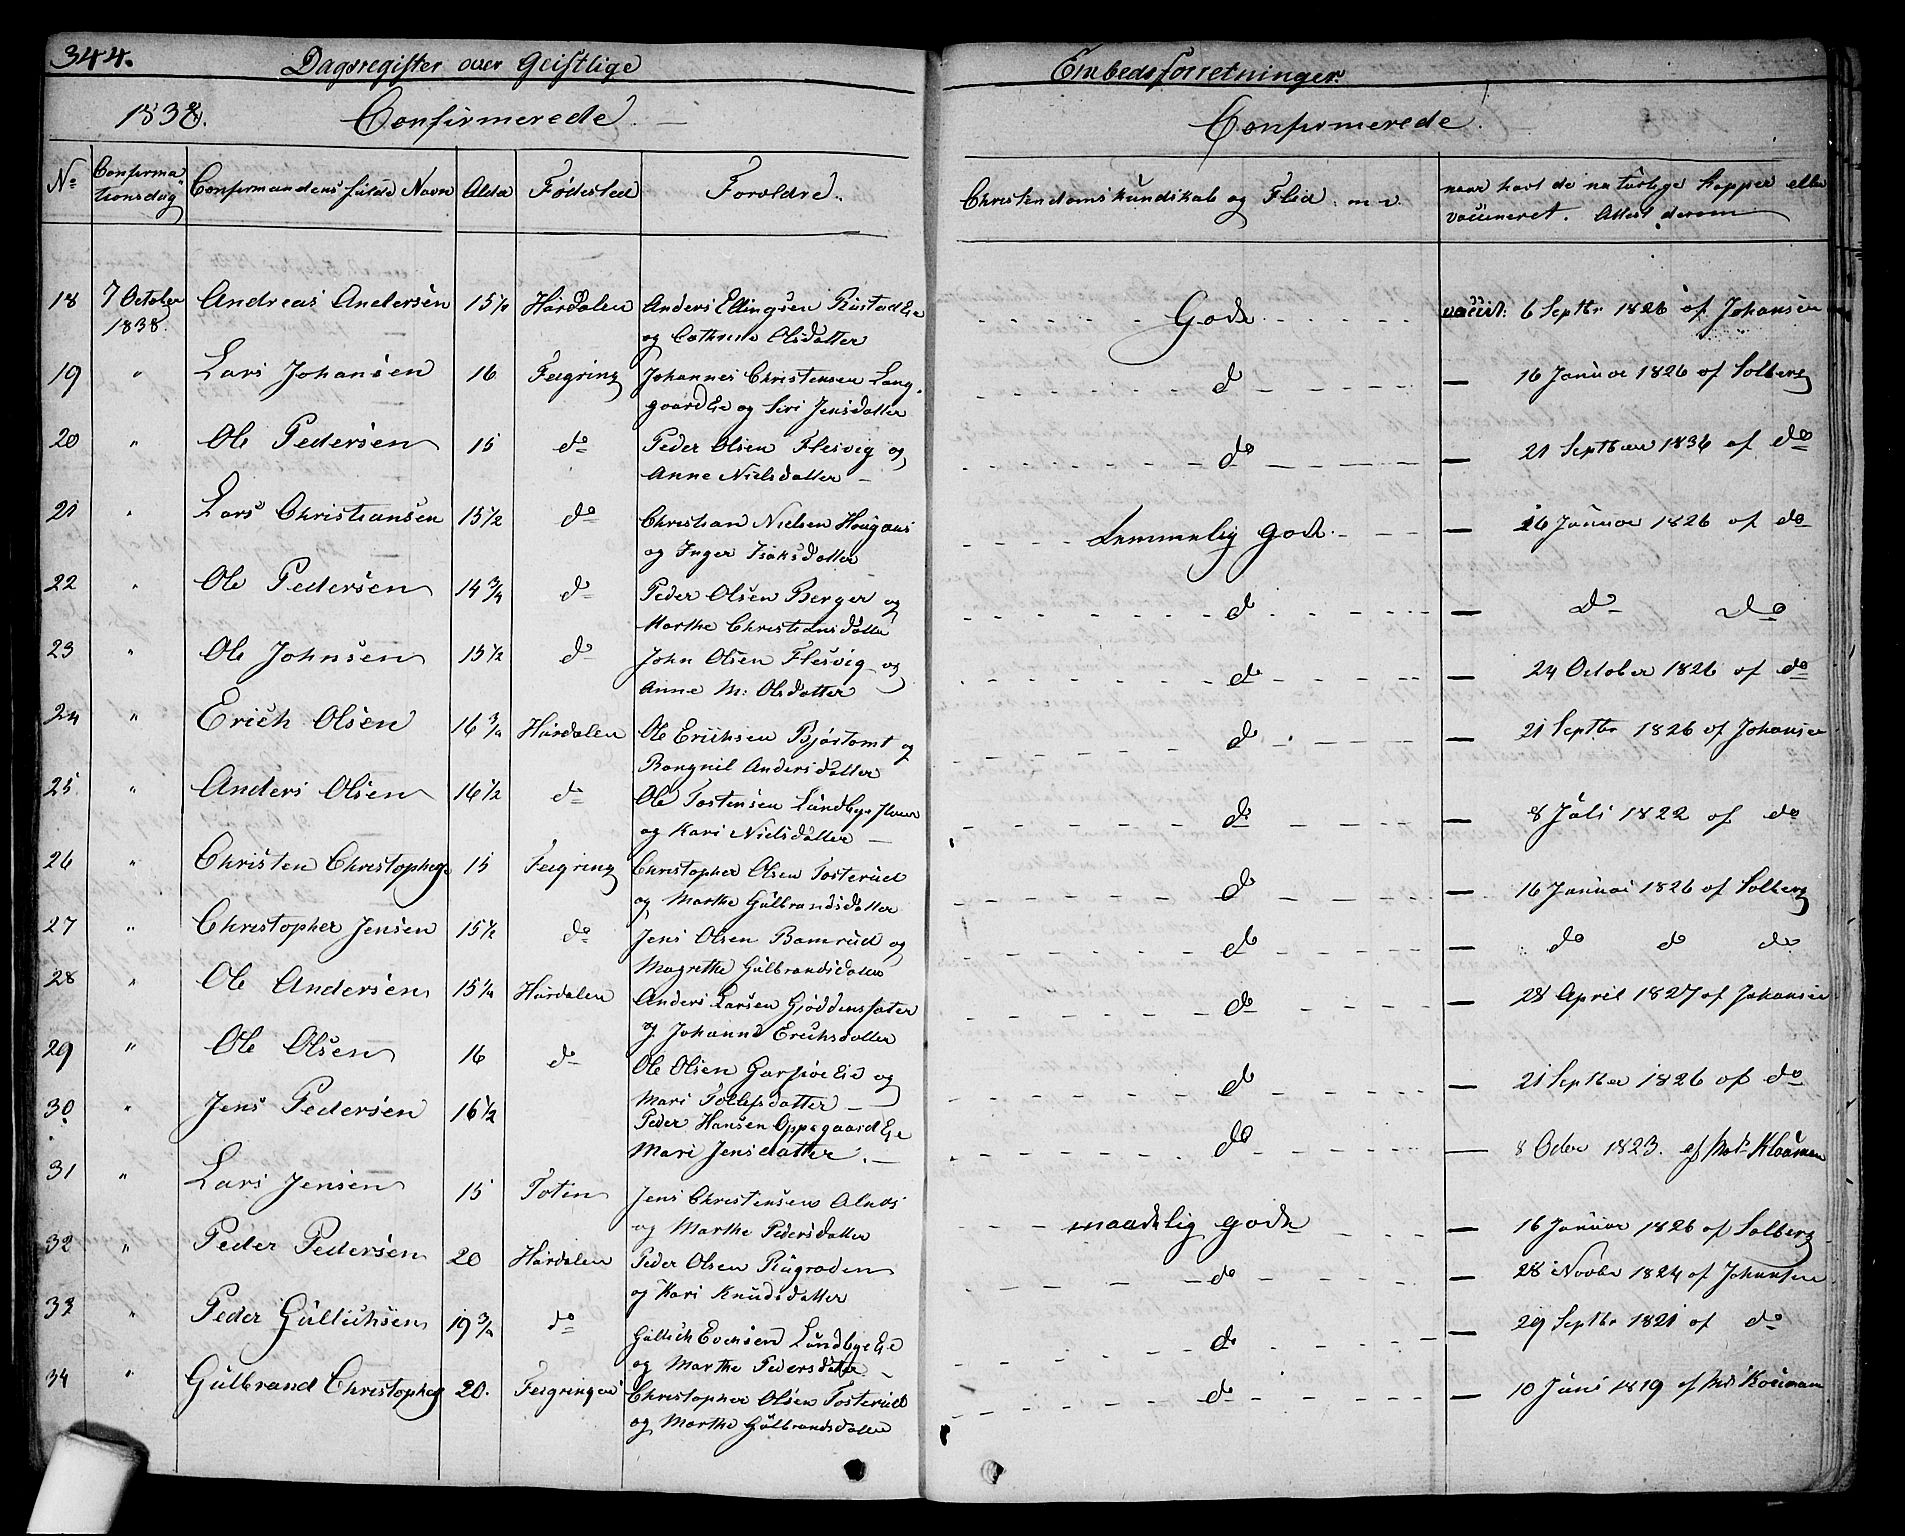 344.
Dagsregister over Geistlige Embedsforretninger.
1838. Confirmerede. Confirmerede.
No Confirmationsdag Confirmandens fulde Navn Alder Fødested Forældre. Christendomskundskab og Flid m. v. naar havt de naturlige Kopper eller
vaccineret. Attest derom
18 7 October Andreas Andersen 15 Hurdalen Anders Ellingsen Rustad Eie Gode vaccit: 6 Septbr 1826 af Johansen
1838. og Cathrine Olsdatter
19 " Lars Johansen 16 Feigring Johannes Christensen Lang- do — 16 Januar 1826 af Solberg
gaard Eie og Siri Jensdatter
20 " Ole Pedersen 15 do Peder Olsen Flesvig og do — 21 Septber 1836 af do
Anne Nielsdatter —
21 " Lars Christiansen 15½ do Christian Nielsen Hougnæs Temmelig gode. — 16 Januar 1826 af do
og Inger Isaksdatter
22 " Ole Pedersen 14¾ do Peder Olsen Berger og do — do do
Marthe Christiansdatter
23 " Ole Johnsen 15½ do John Olsen Flesvig og do — 24 October 1826 af do
Anne M: Olsdatter
24 " Erich Olsen 16¾ Hurdalen Ole Erichsen Bjørtomt og do — 21 Septbr 1826 af Johansen
Rangnil Andersdatter
25 " Anders Olsen 16½ do Ole Tostensen Lundbye do — 8 Juli 1822 af do
og Kari Nielsdatter —
26 " Christen Christophers 15 Feigring Christopher Olsen Tosterud do — 16 Januar 1826 af Solberg
og Marthe Gulbrandsdatter
27 " Christopher Jensen 15½ do Jens Olsen Bamrud og do — do do do
Magrethe Gulbrandsdatter
28 " Ole Andersen 15¼ Hurdalen Anders Larsen Gjøddensæter do — 28 April 1827 af Johansen
og Johanne Erichsdatter
29 " Ole Olsen 16 do Ole Olsen Garsjøe Eie og do — 21 Septber 1826 af do
Mari Tollefsdatter —
30. " Jens Pedersen 16½ Peder Hansen Oppegaard Eie do — 8 Octbr 1823. af
Mari Jensdatter. —
31 " Lars Jensen 15 Toten Jens Christensen Alnæs maadelig gode — 16 Januar 1826 af Solberg
og Marthe Pedersdatter
32 " Peder Pedersen 20 Hurdalen Peder Olsen Rugraden do — 28 Novbr 1824 af Johansen
og Kari Knudsdatter
33 " Peder Gullichsen 19¾ do Gullich Evensen Lundbye Eie do — 29 Septbr 1821 af do
og Marthe Pedersdatter —
34 " Gulbrand Christophers 20. Feigringen Christopher Olsen Tosterud do — 10 Juni 1819 af
og Marthe Gulbrandsdatter